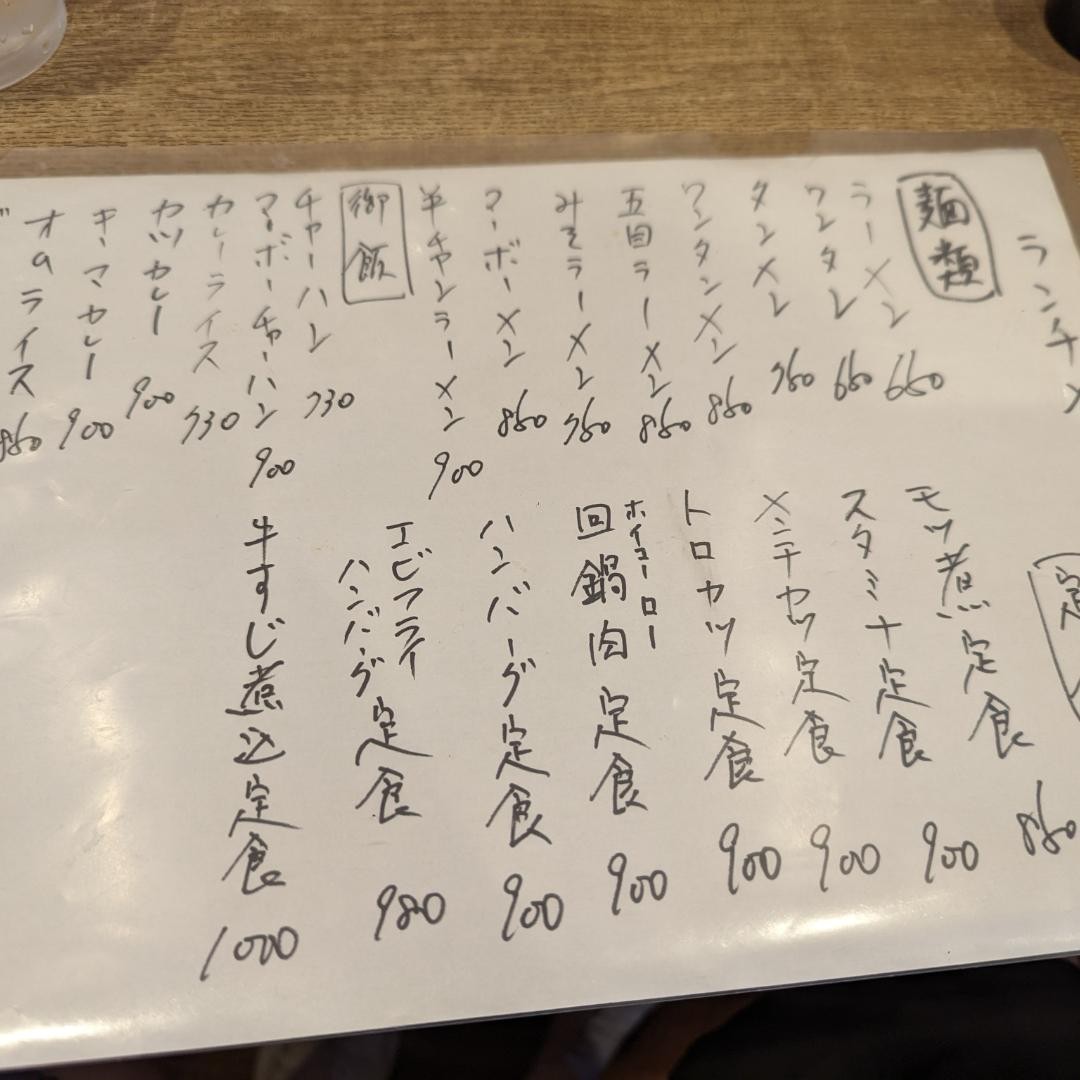 ランチメ
麺類
ラーメン 660
ワンタン 660
タンメン 760
ワンタンメン 860
五目ラーメン 860
みそラーメン 760
マーボーメン 860
半チャンラーメン 900
御飯
チャーハン 730
マーボーチャーハン 900
カレーライス 730
カツカレー 900
キーマカレー 900
オムライス 860
定
モツ煮定食 860
スタミナ定食 900
メンチカツ定食 900
トロカツ定食 900
ホイコーロー
回鍋肉定食 900
ハンバーグ定食 900
エビフライ
ハンバーグ定食 980
牛すじ煮込定食 1000